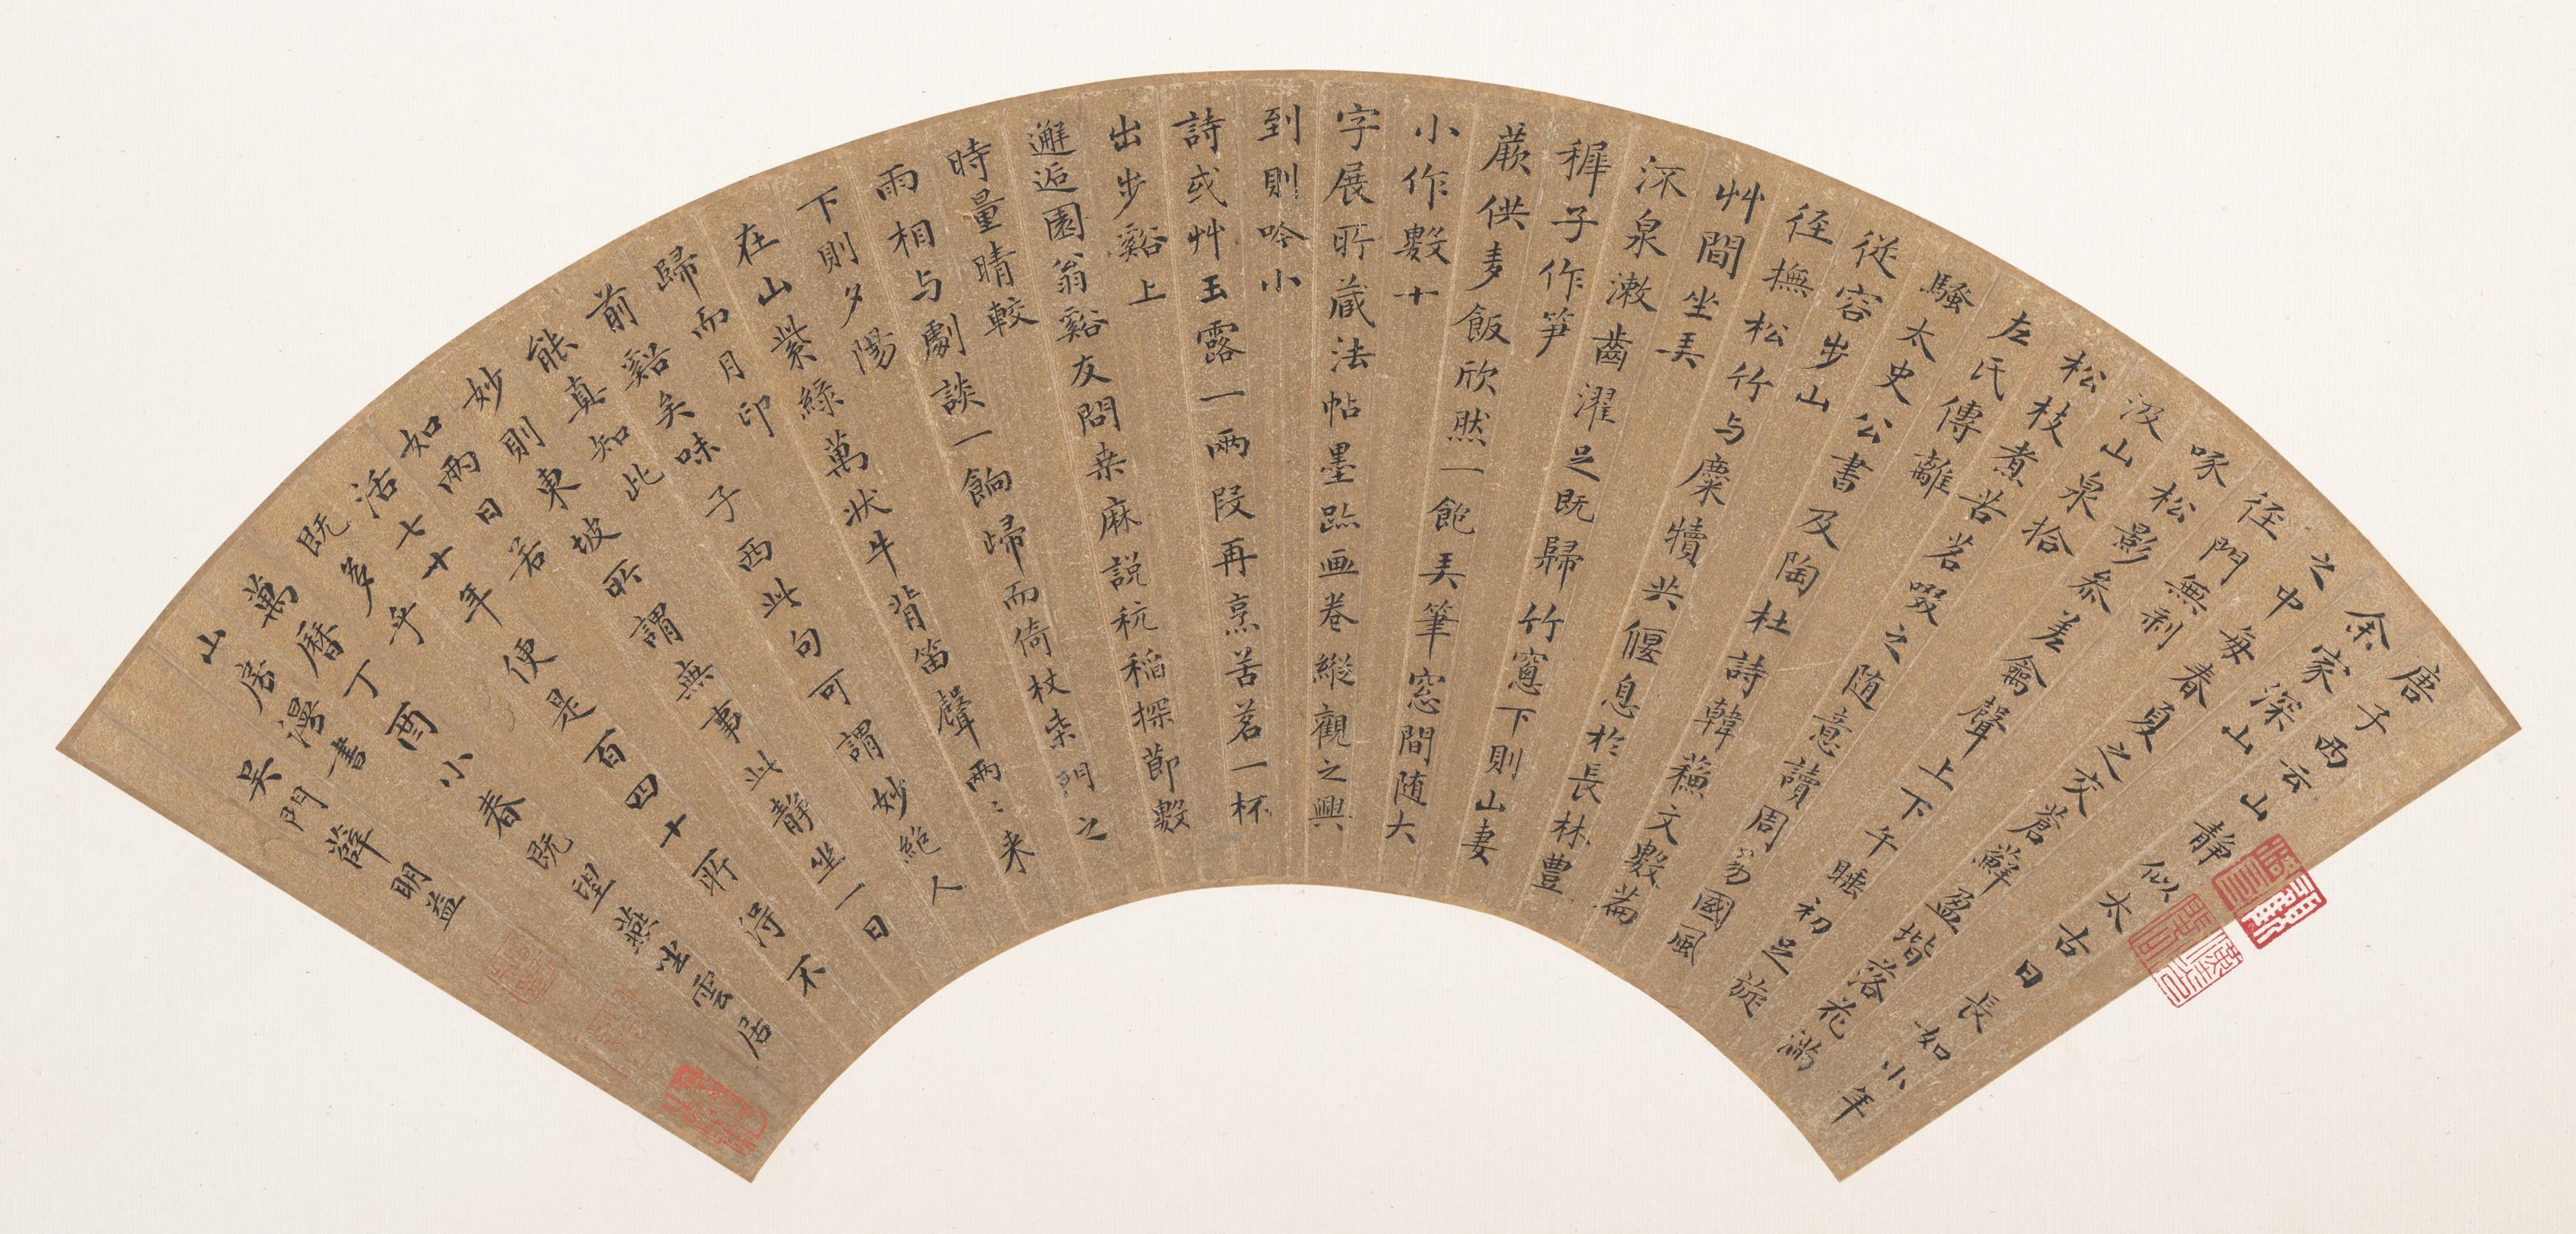 唐子西云山靜似太古日長如小年
余家深山
之中每春夏之交蒼蘚盈堦落花滿
徑門無剝
啄松影叅差禽聲上下午睡初足旋
汲山泉拾
松枝煮苦茗啜之随意讀周易國風
左氏傳離
騷太史公書及陶杜詩韓蘓文數篇
従容步山
徑撫松竹与麋犢共偃息於長林豐
艸間坐弄
流泉漱齒濯足既歸竹窻下則山妻
穉子作笋
蕨供麦飯欣然一飽弄筆窓間随大
小作數十
字展所蔵法帖墨跡画卷縱觀之興
到則吟小
詩或艸玉露一兩段再烹苦茗一杯
出步谿上
邂逅園翁谿友問桒麻說秔稲探節數
時量晴較
雨相与劇談一餉歸而倚杖柴門之
下則夕陽
在山紫綠萬状牛背笛聲兩々来
歸而月印
前谿矣味子西此句可謂妙絕人
能真知此
妙則東坡所謂無事此静坐一日
如兩日若
活七十年便是百四十所得不
既多乎
萬曆丁酉小春既望燕坐雲居
山房漫書
吳門薛明益